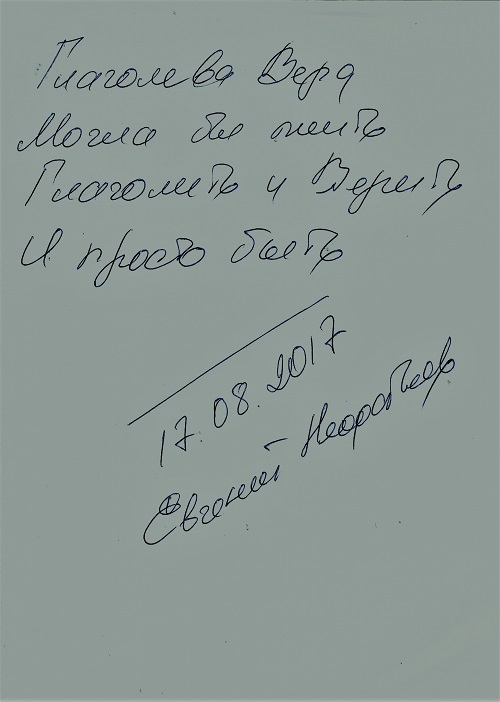 Глаголева Вера
Могла бы жить
Глаголить и Верить
И просто быть
17.08.2017
Евгений